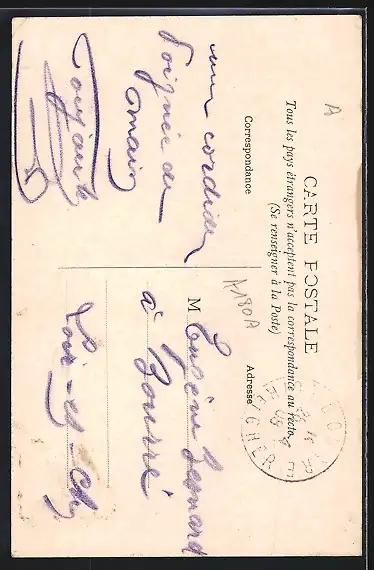 A
CARTE POSTALE
Tous les pays étrangers n'acceptent pas la correspondance au recto.
(Se renseigner à la Poste)
Correspondance
Adresse
une cordiale
Poignée de
main
A180A
M Eugène Besnard
à Bourré
Loir-et-Cher
CHER